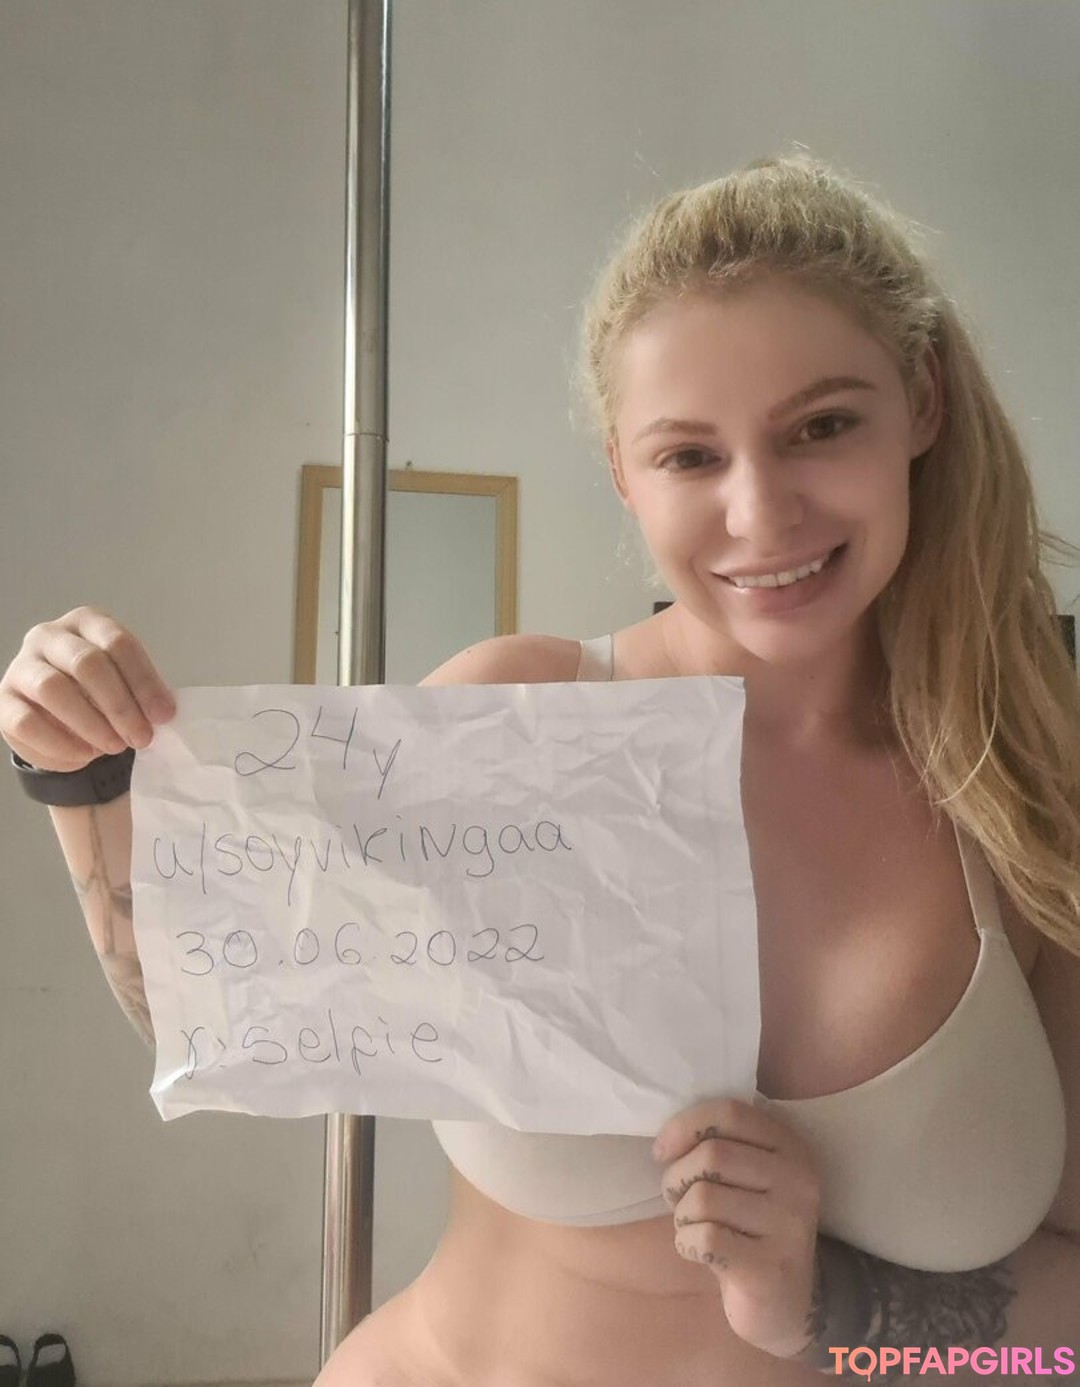 24y
u/soyvikingaa
30.06.2022
r:selfie
TOPFAPGIRLS